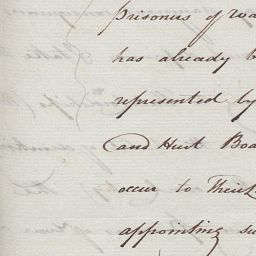 prisoners of wa
has already b
represented by
and Hurt Boa
occur to Their
appointing su